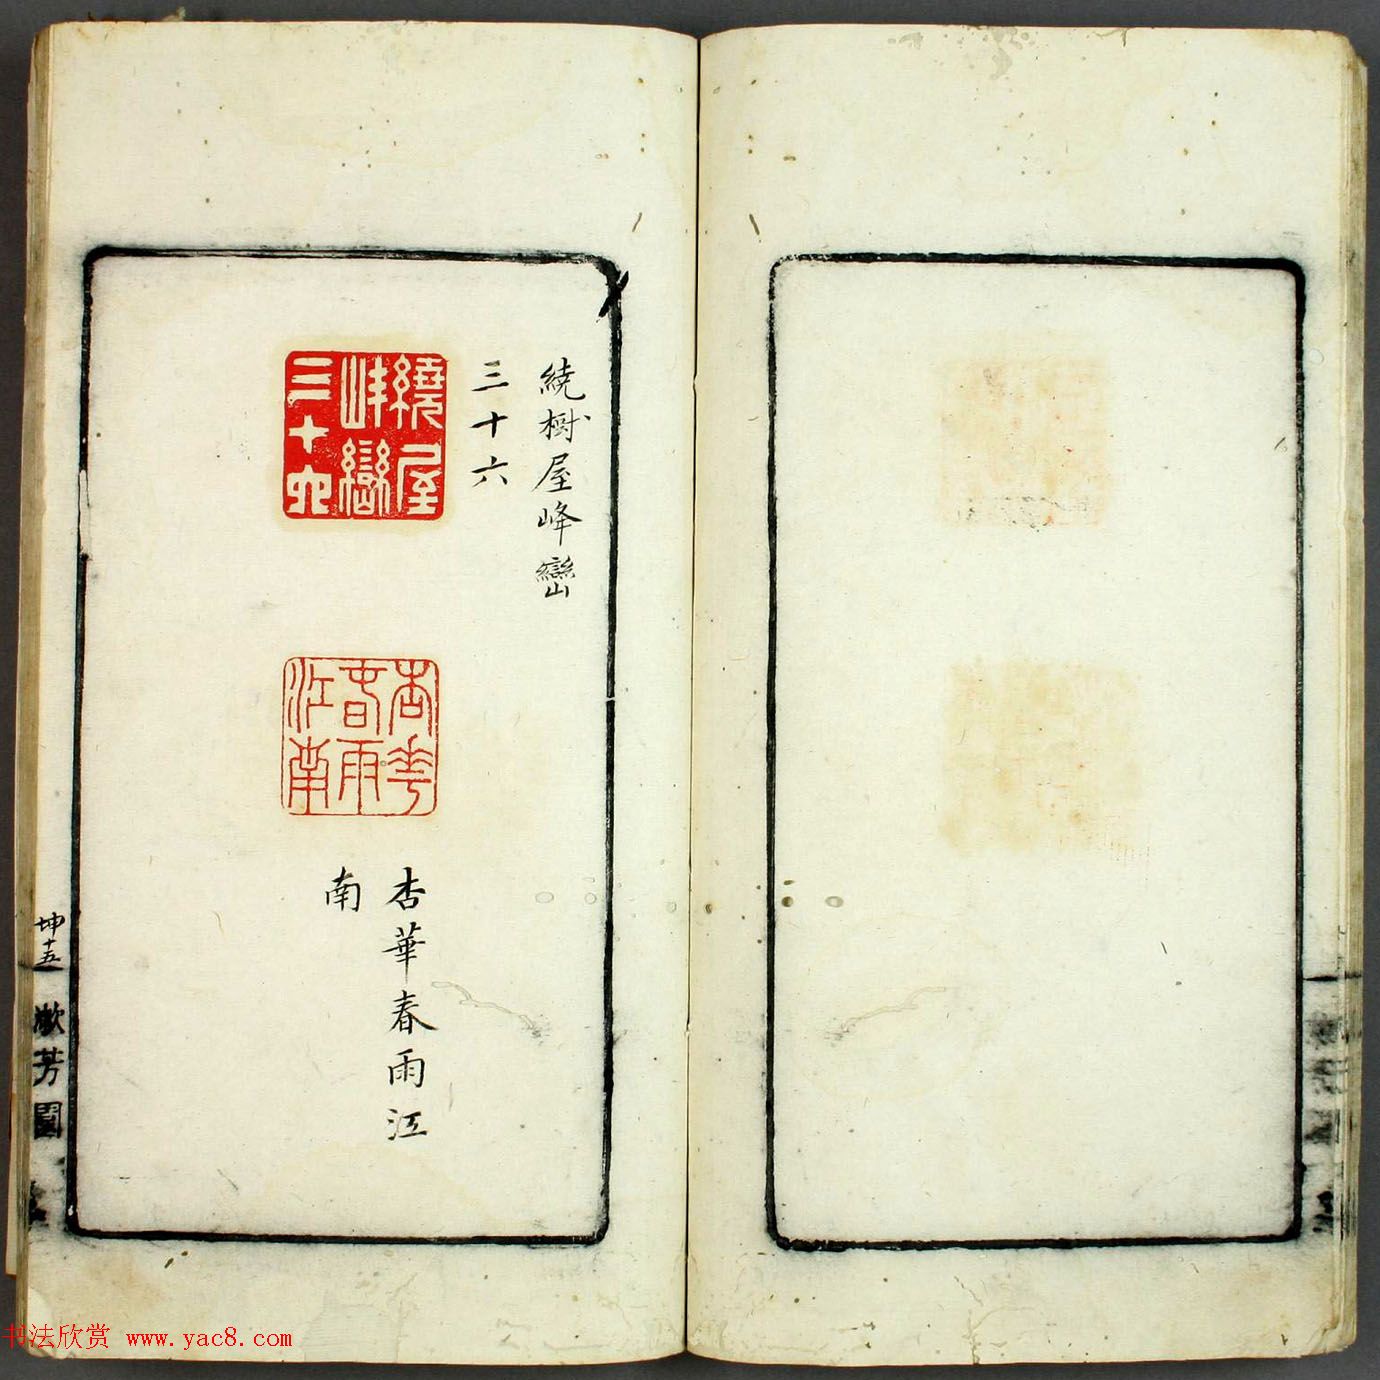 繞樹屋峰巒
三十六
繞屋
峰巒
三十六
杏華
春雨
江南
杏華春雨江
南
坤十五
漱芳園
书法欣赏 www.yac8.com